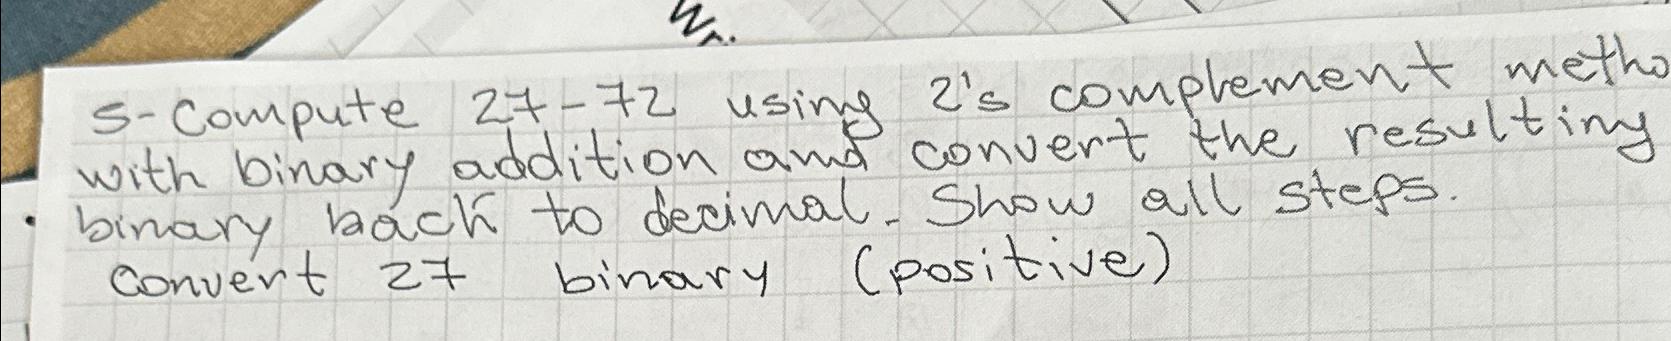 Wr.
5-Compute 27-72 using 2's complement metho
with binary addition and convert the resulting
binary back to decimal. Show all steps.
Convert 27 binary (positive)